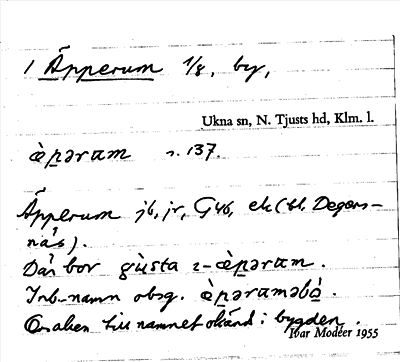 1 Äpperum 1/8, by,
Ukna sn, N. Tjusts hd, Klm. l.
àpəram s. 137.
Äpperum jb, jr, G46, ek (bl. Degers-
näs).
Där bor gùsta i-àpəram.
Inb.-namn obsg. àpəraməbò.
Orsaken till namnet okänd i bygden.
Ivar Modéer 1955